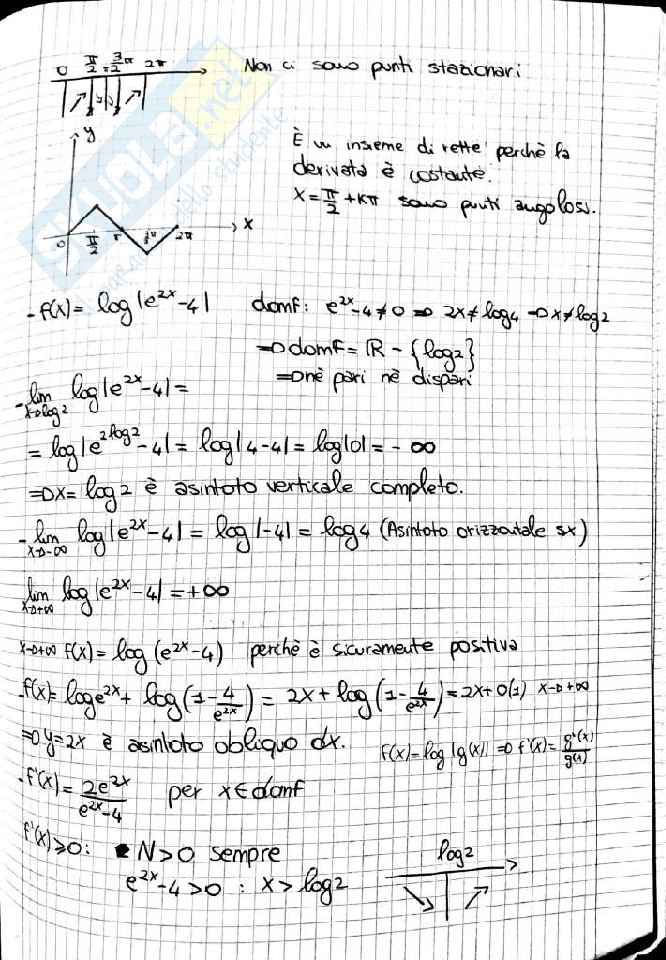 0 π/2 3/2π 2π
Non ci sono punti stazionari
y
È un insieme di rette perchè la
derivata è costante.
x = π/2 + kπ sono punti angolosi.
0 π/2 π 3/2π 2π x
- f(x) = log|e^{2x}-4| domf: e^{2x}-4≠0 ⇒ 2x≠log4 ⇒ x≠log2
⇒ domf = ℝ - {log2}
⇒ nè pari nè dispari
- lim x→log2 log|e^{2x}-4| =
= log|e^{2log2}-4| = log|4-4| = log|0| = -∞
⇒ x = log2 è asintoto verticale completo.
- lim x→-∞ log|e^{2x}-4| = log|-4| = log4 (Asintoto orizzontale sx)
lim x→+∞ log|e^{2x}-4| = +∞
x→+∞ f(x) = log(e^{2x}-4) perchè è sicuramente positiva
- f(x) = loge^{2x} + log(1-4/e^{2x}) = 2x + log(1-4/e^{2x}) = 2x + o(1) x→+∞
⇒ y=2x è asintoto obliquo dx. f(x) = log|g(x)| ⇒ f'(x) = g'(x)/g(x)
- f'(x) = 2e^{2x}/(e^{2x}-4) per x∈domf
f'(x)≥0: • N>0 sempre
e^{2x}-4>0 : x>log2
log2
SKUOLA.net
dello studente